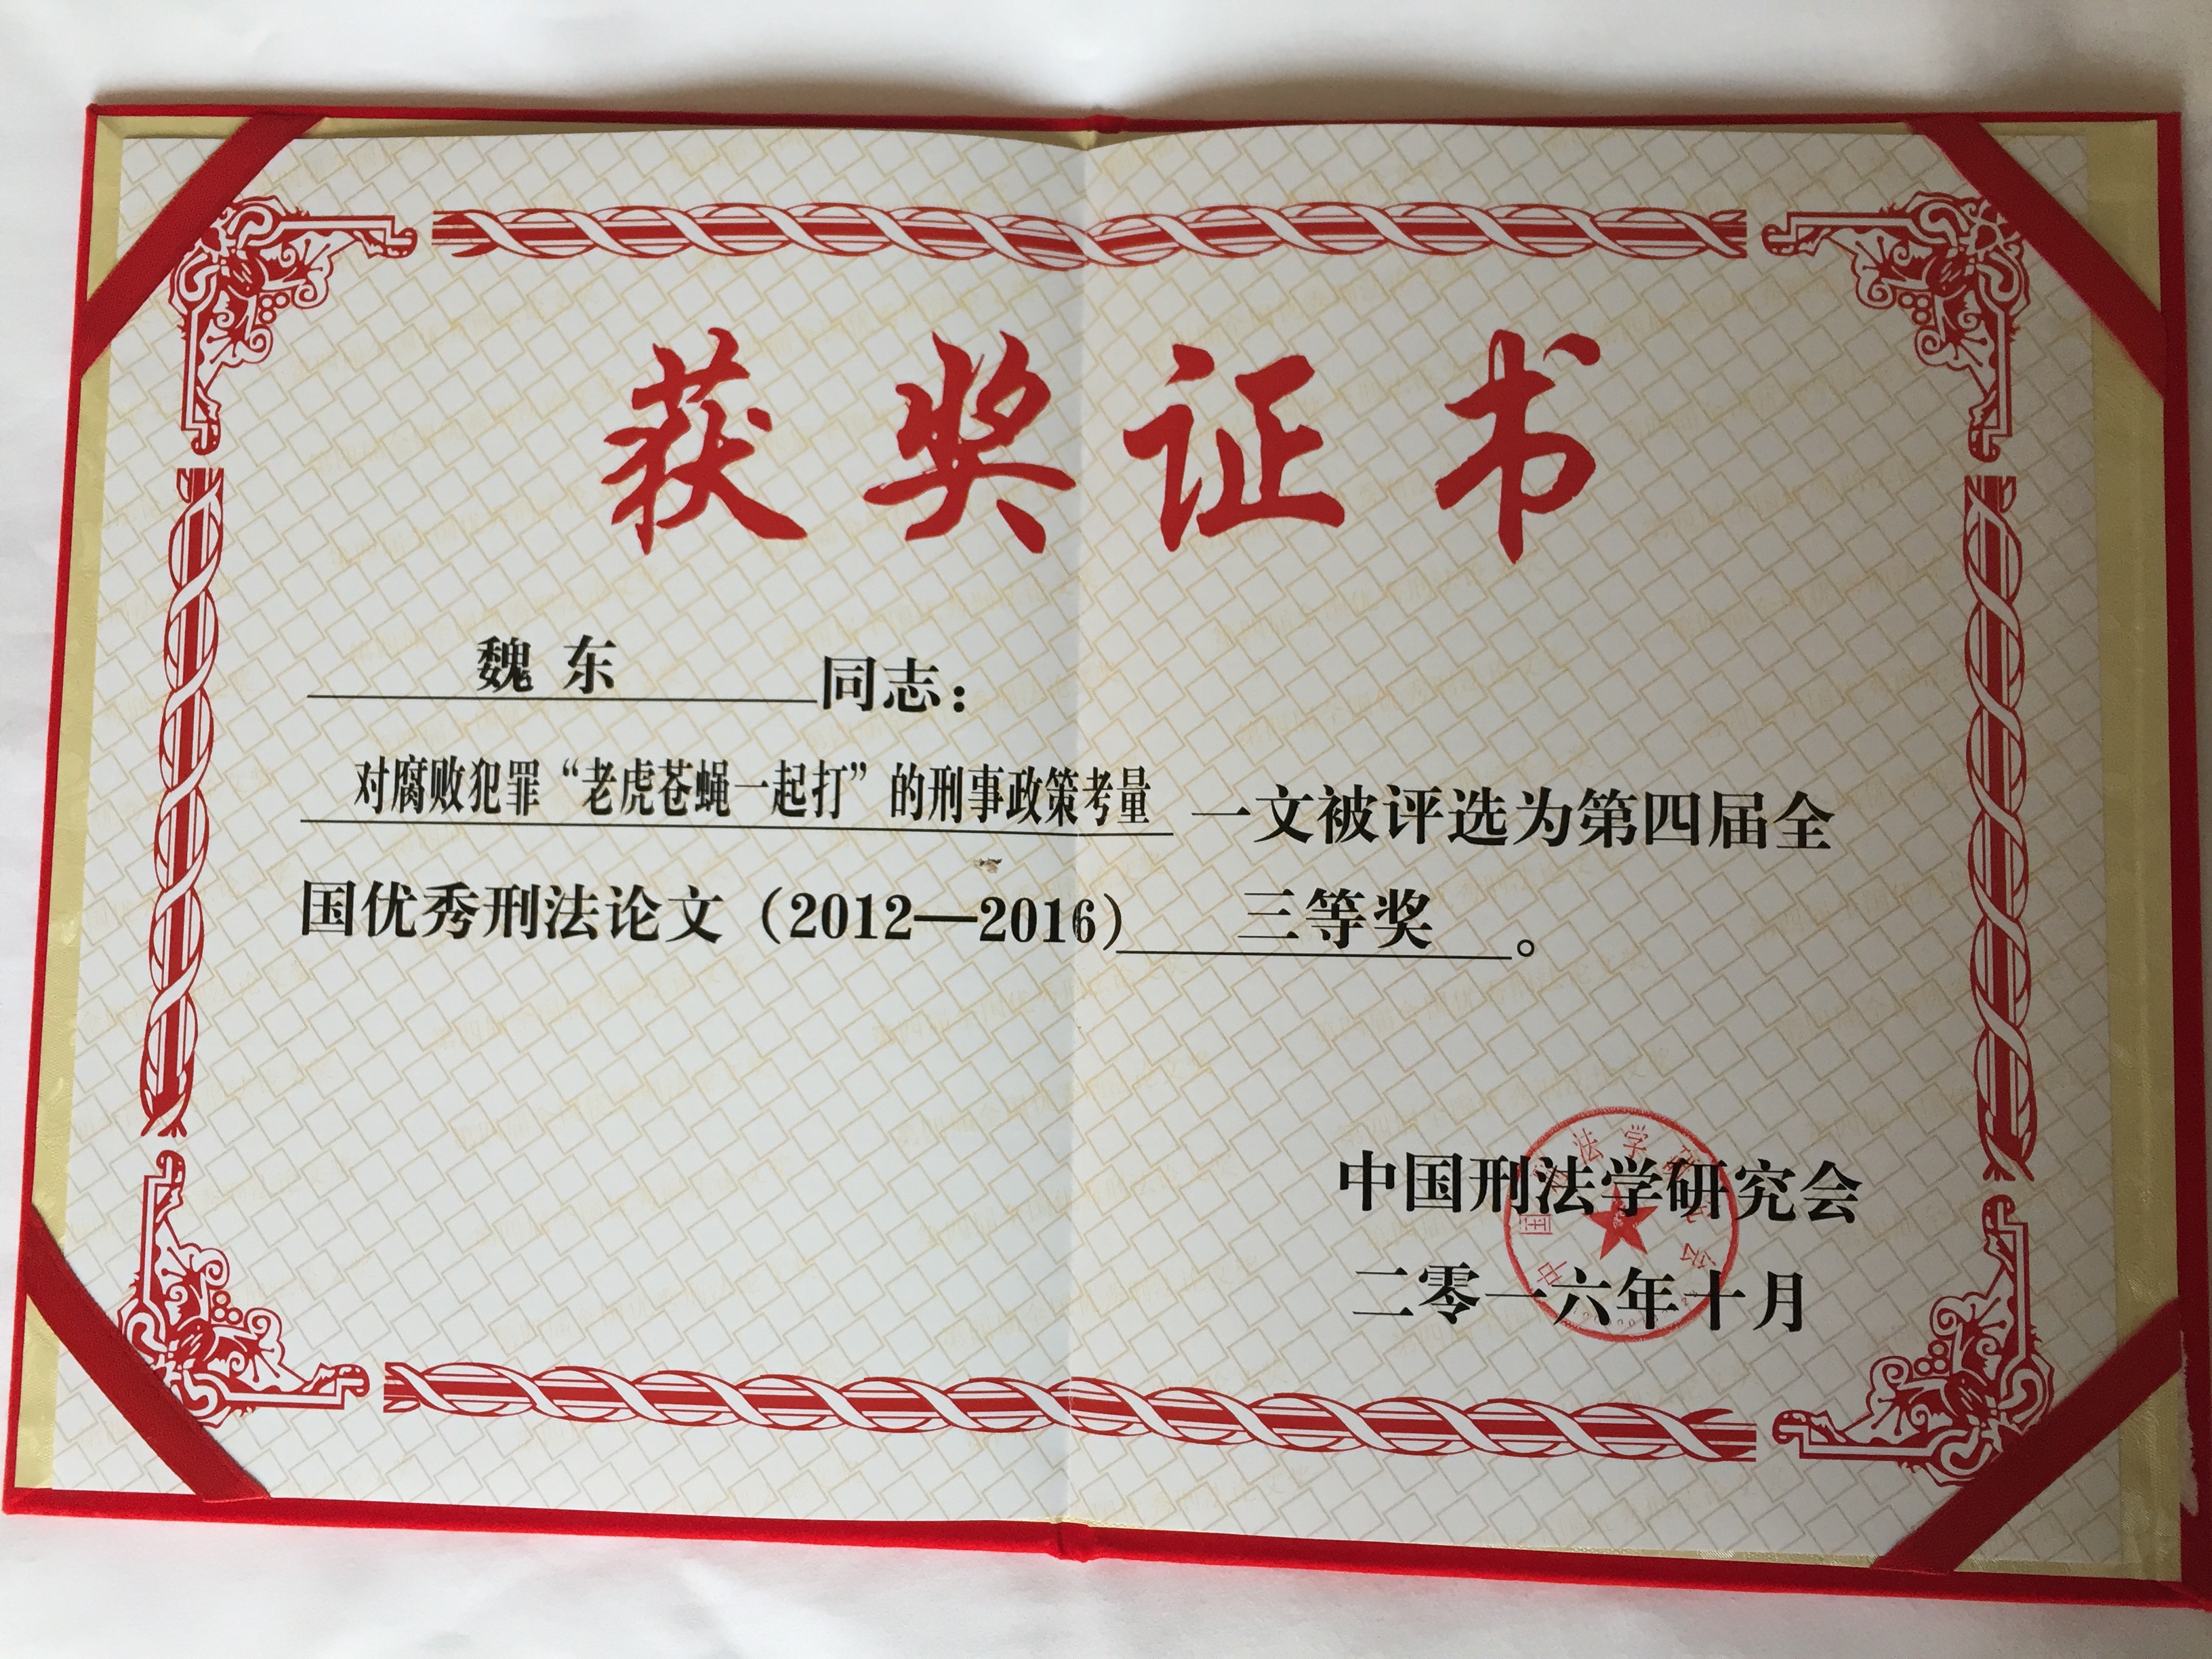 获奖证书
魏东同志：
对腐败犯罪“老虎苍蝇一起打”的刑事政策考量一文被评选为第四届全
国优秀刑法论文（2012—2016）三等奖。
中国刑法学研究会
二零一六年十月
中国刑法学研究会